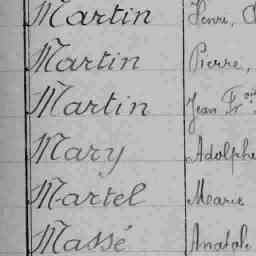 Martin Henri,
Martin Pierre,
Martin Jean Fr.ois
Mary Adolphe
Martel Marie
Massé Anatole